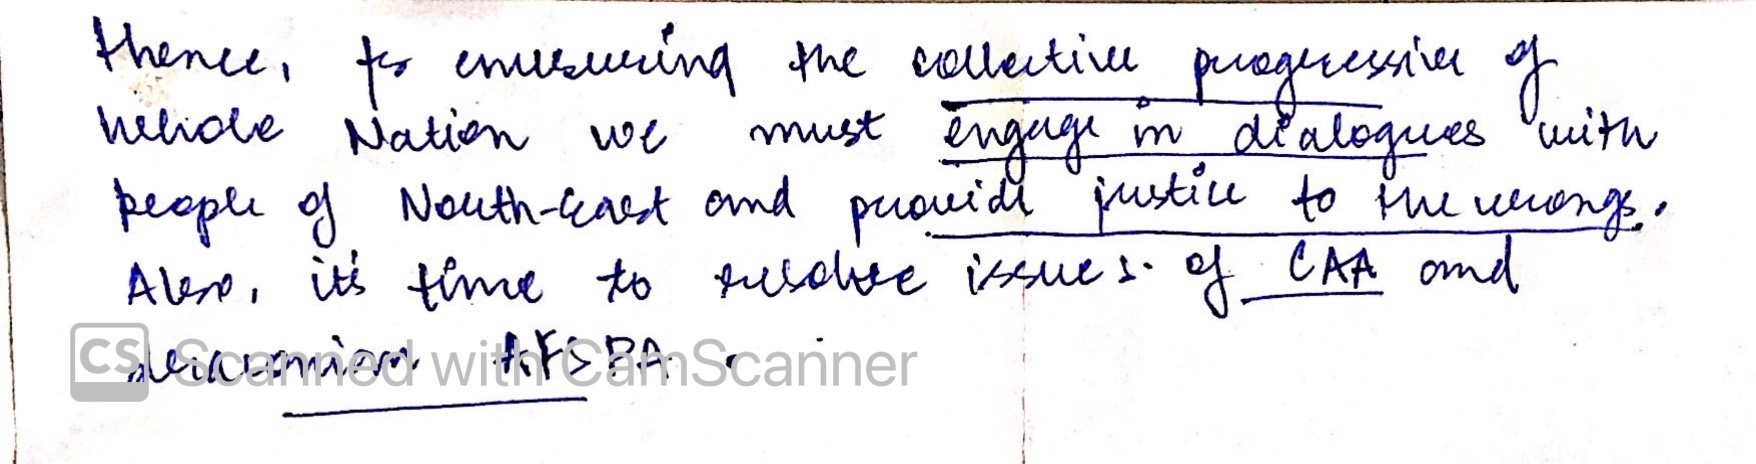 thence, for ensuring the collective progressive of
whole Nation we must engage in dialogues with
people of North-East and provide justice to the wrongs.
Also, it's time to resolve issues of CAA and
AFSPA.
CS Scanned with CamScanner